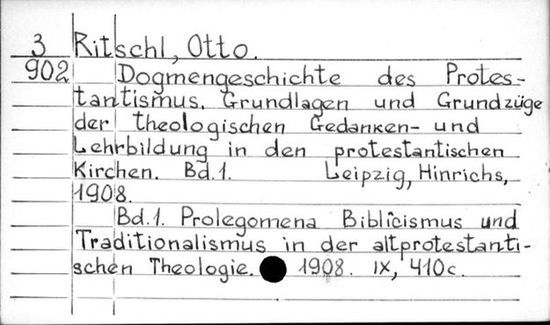 3 Ritschl, Otto.
902 Dogmengeschichte des Protes-
tantismus. Grundlagen und Grundzüge
der theologischen Gedanken- und
Lehrbildung in den protestantischen
Kirchen. Bd.1. Leipzig, Hinrichs,
1908.
Bd.1. Prolegomena Biblicismus und
Traditionalismus in der altprotestanti-
schen Theologie. 1908. IX, 410c.